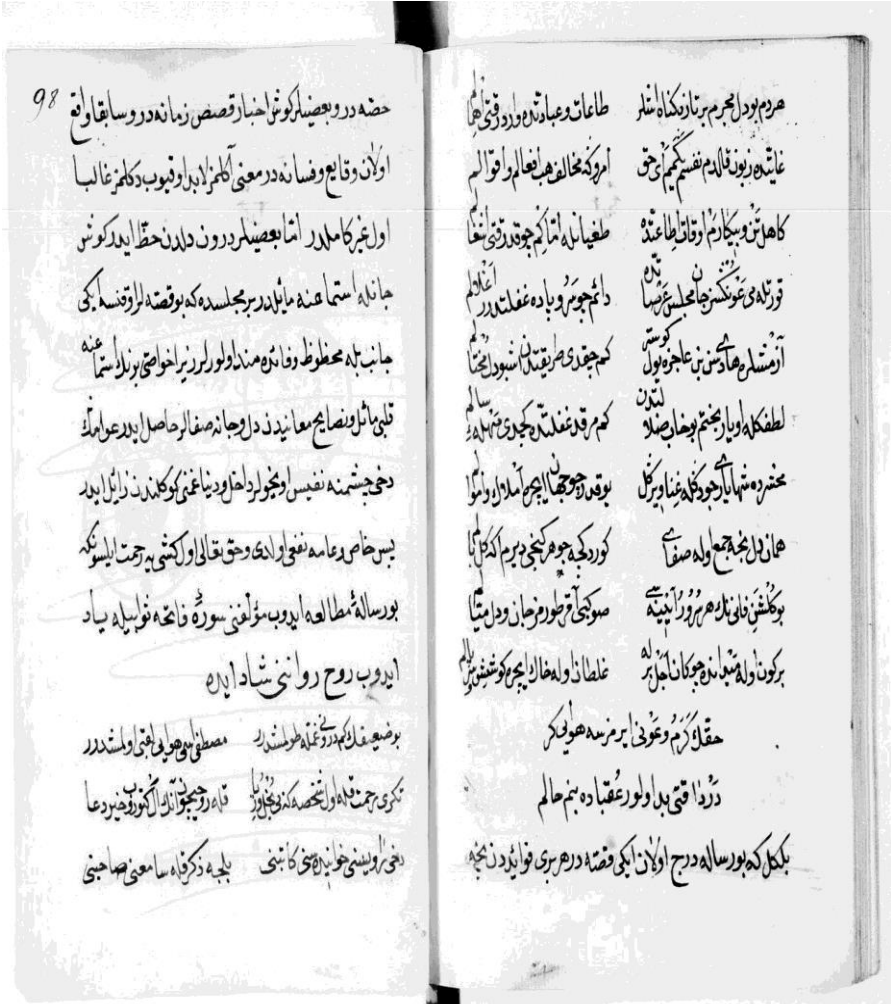 هر دم بو دل مجرم بر تازه گناه اشلر طاعات و عبادتده واردر قتی اهمالم
غایتده زبون قالدم نفسم الندن ای حق امروکه مخالف هب افعالم و اقوالم
کاهل تن و بیکارم اوقات طاعتده طغیانله اما کم چوقدر قتی اشغالم
قورتله می عونکسز جان مجلس عرصاتده دائم چو سر و باده غفلتده در اغلالم
ازمشلره هادیسن بن عاجزه یول کوستر کم چقدی طریقتدن اشبو دل محتالم
لطفکله اویار بختم بو خواب ضلالتدن کم مرقد غفلتده کچدی مه و سالم
محشرده شها یای جودکله غنا ویر کل بوقدر چو جهان ایچره املاک و اموالم
همان دل نیجه جمع اوله صفای کوردکجه چوهر کنجی دیرم اکه کل بالم
بو کلشن فانی نک هر سرور آیینه سی صو کبی اقر طورمز جان و دل میالم
بر کون اوله میدانده چوکان اجل برله غلطان اوله خاک ایچره کوشش
حقک کرم و عونی ایرمزسه هوایی کر
دردا قتی بد اولور عقباده بنم حالم
بلکل که بو رساله درج اولان ایکی قصه در هر بری فوائددن نیجه
98
حصه در و بعضیلر کوش اخبار قصص زمانه در و سابقا واقع
اولان وقایع و فسانه در معنی اکلمز لابد اوقیوب دکلمز غالبا
اول غیر کاملدر اما بعضیلر درون دلدن حظ ایدر کوش
جانله استماعنه مائلدر بر مجلسده که بو قصه لر اوقنسه ایکی
جانب بله محظوظ و فائده مند اولورلر زیرا خواصی بونک استماعنه
قلبی مائل و نصایح معانیدن دل و جانه صفالر حاصل ایدر عوامک
دخی چشمنه نفیس اویخولر داخل و دنیا غمنی کوکلندن زائل ایدر
پس خاص و عامه نفعی اولدی و حق تعالی اول کشی یه رحمت ایلسونکه
بو رسالۀ مطالعه ایدوب مؤلفنی سورۀ فاتحه ثوابیله یاد
ایدوب روح روانن شاد ایده
بو ضعیفک کم درونی غمله طولمشدر مصطفی اسمی هوایی لقبی اولمشدر
تکری رحمت قیله اول شخصه که بنی قیله روحیچون آنک ال کتوروب خیر دعا
دخی راویسنی خواننده سنی کاتبنی بلجه ذکر قیله سامعنی صاحبنی